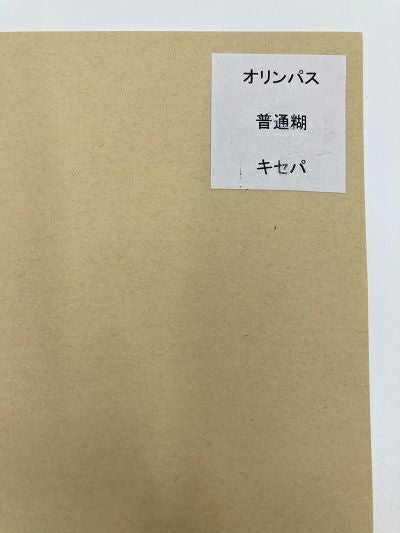 オリンパス
普通糊
キセパ